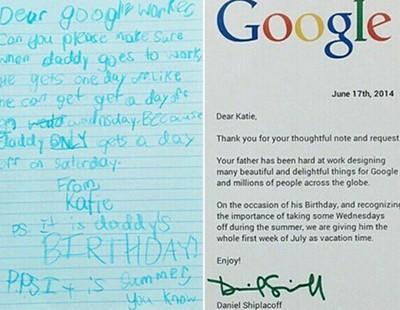 Dear google worker
Can you please make sure
when daddy goes to work
he gets one day off like
he can get get a day off
on wednsday. Because
daddy ONLY gets a day
off on saturday.
From,
Katie
P.S. It is daddy's
BIRTHDAY!
P.P.S It is summer,
You know
Google
June 17th, 2014
Dear Katie,
Thank you for your thoughtful note and request.
Your father has been hard at work designing
many beautiful and delightful things for Google
and millions of people across the globe.
On the occasion of his Birthday, and recognizing
the importance of taking some Wednesdays
off during the summer, we are giving him the
whole first week of July as vacation time.
Enjoy!
Daniel Shiplacoff